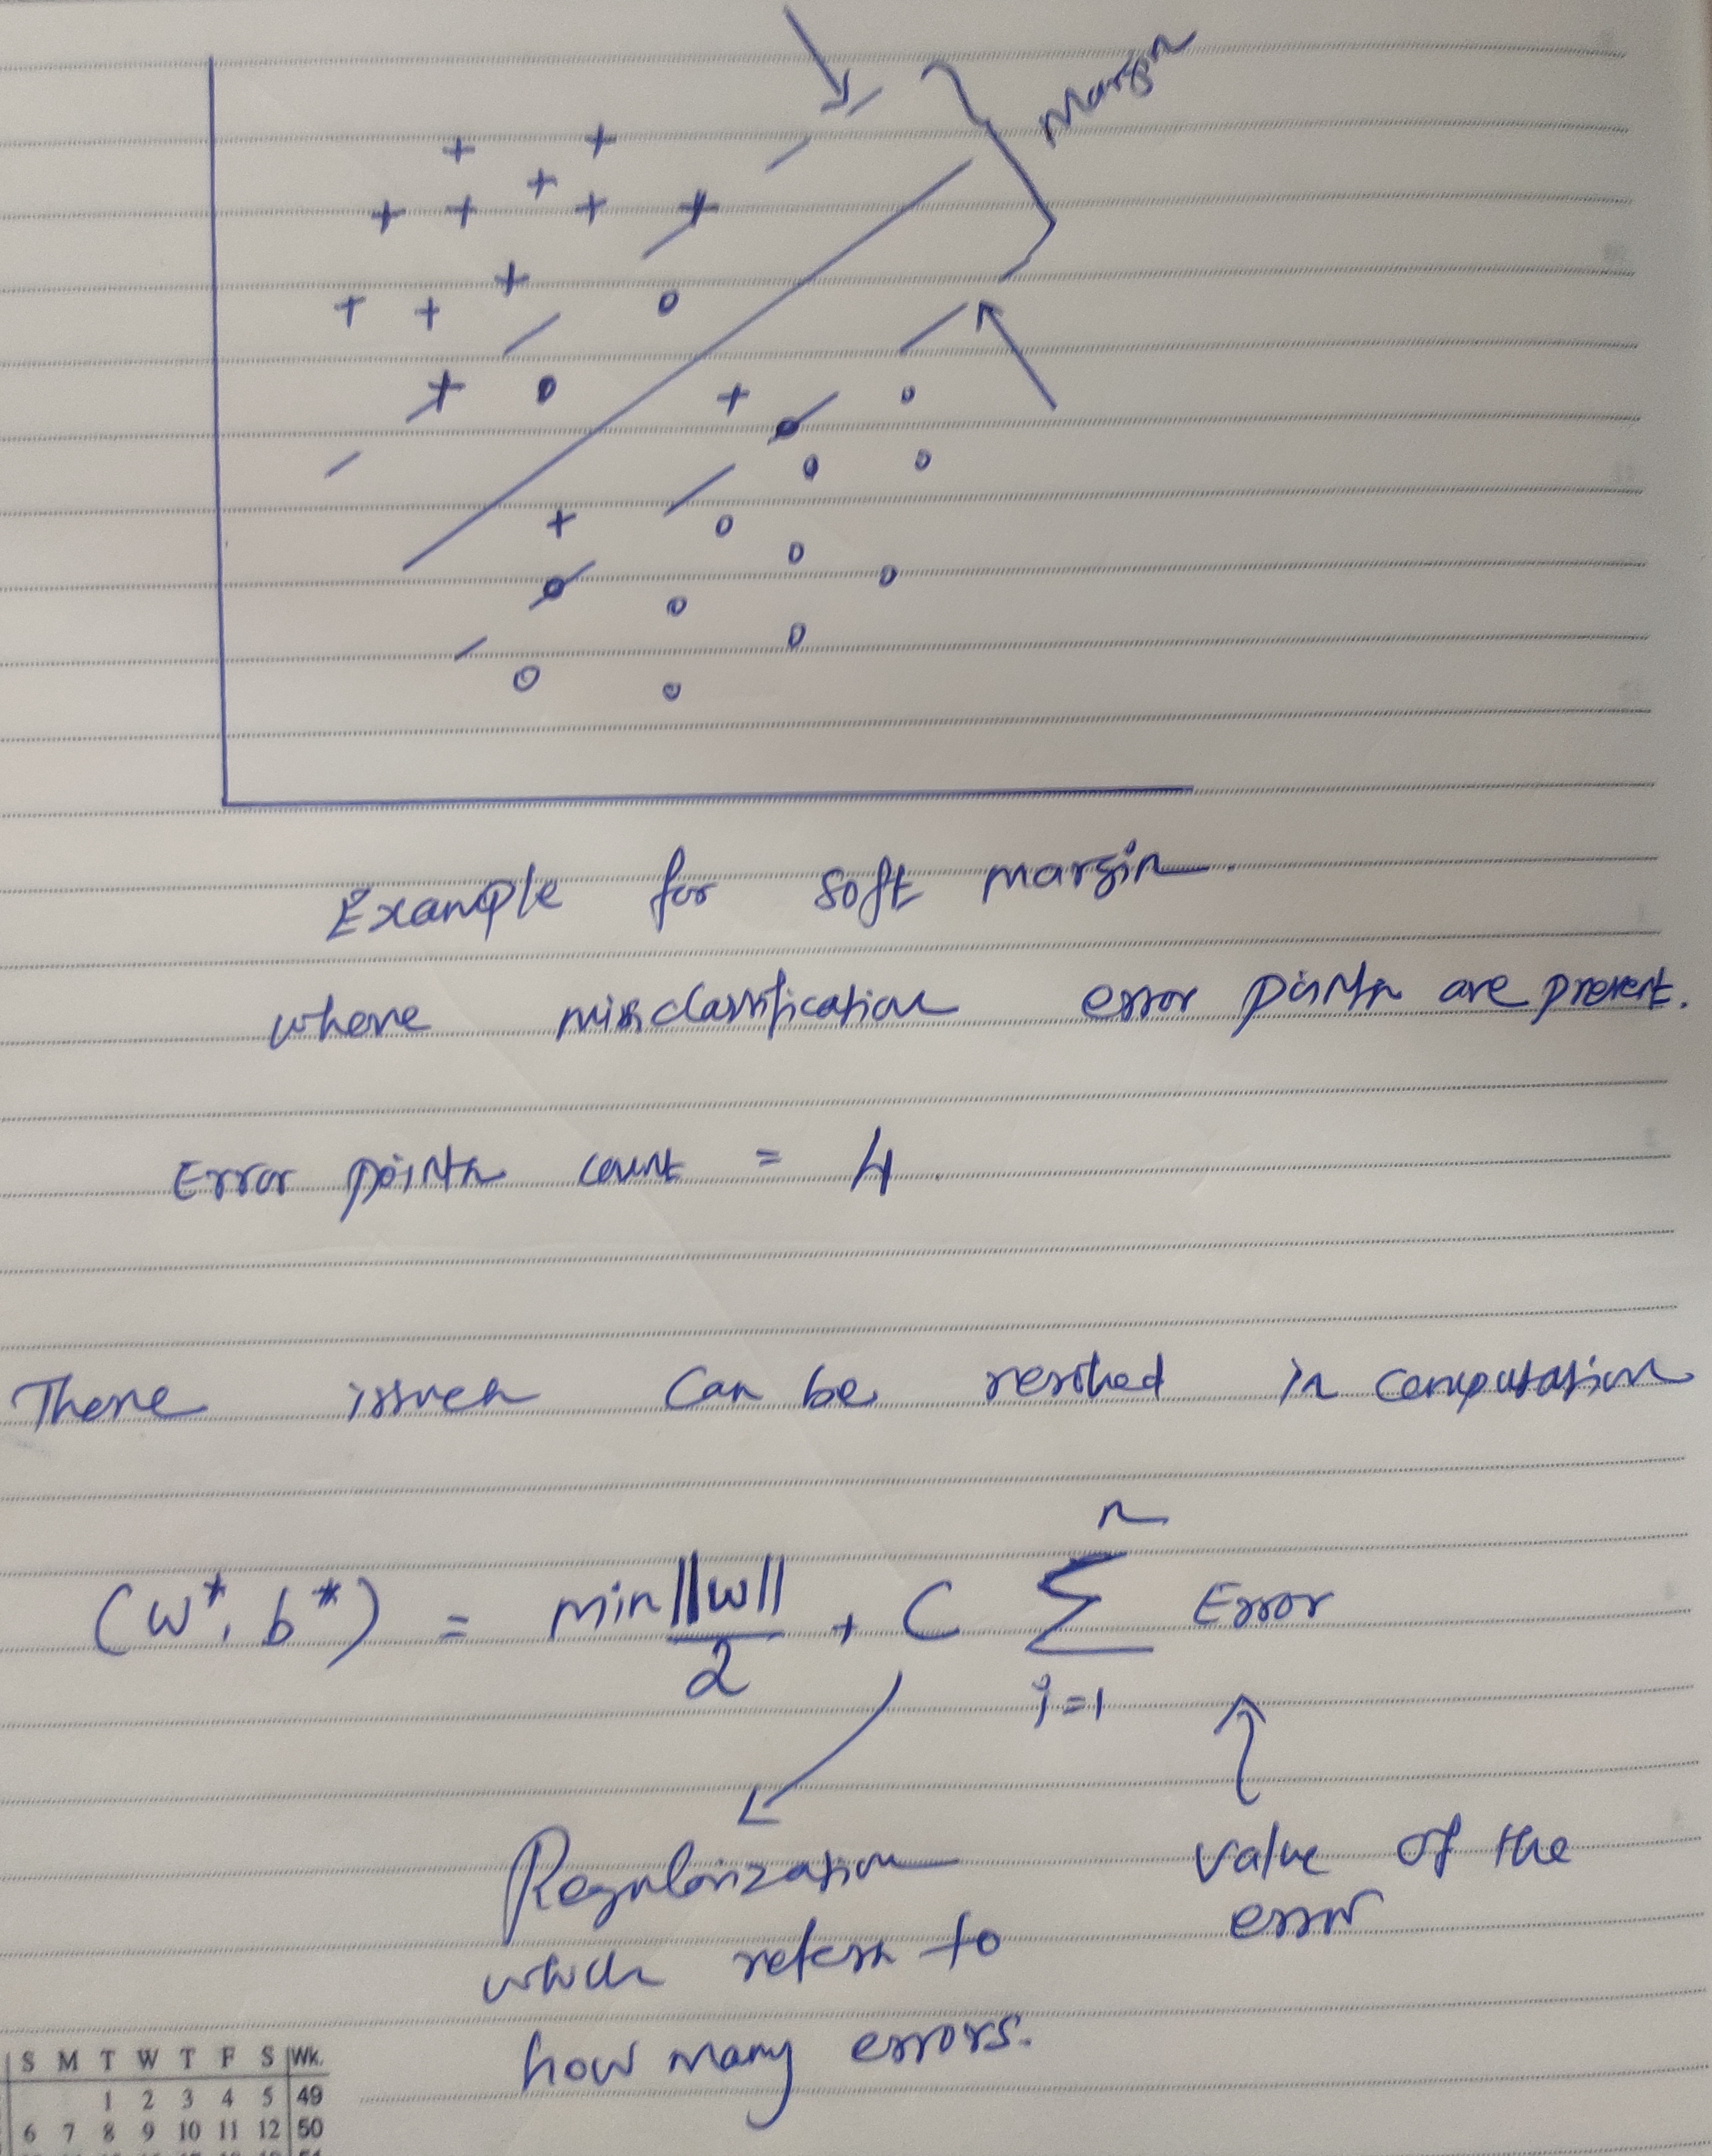 Margin
Example for soft margin.
where misclassification error points are present.
Error points count = 4
These issues can be resolved in computation
(w*, b*) = min ||w|| / 2 + C n Σ i=1 Error
Regularization
which refers to
how many errors.
value of the
error
S M T W T F S Wk.
1 2 3 4 5 49
6 7 8 9 10 11 12 50